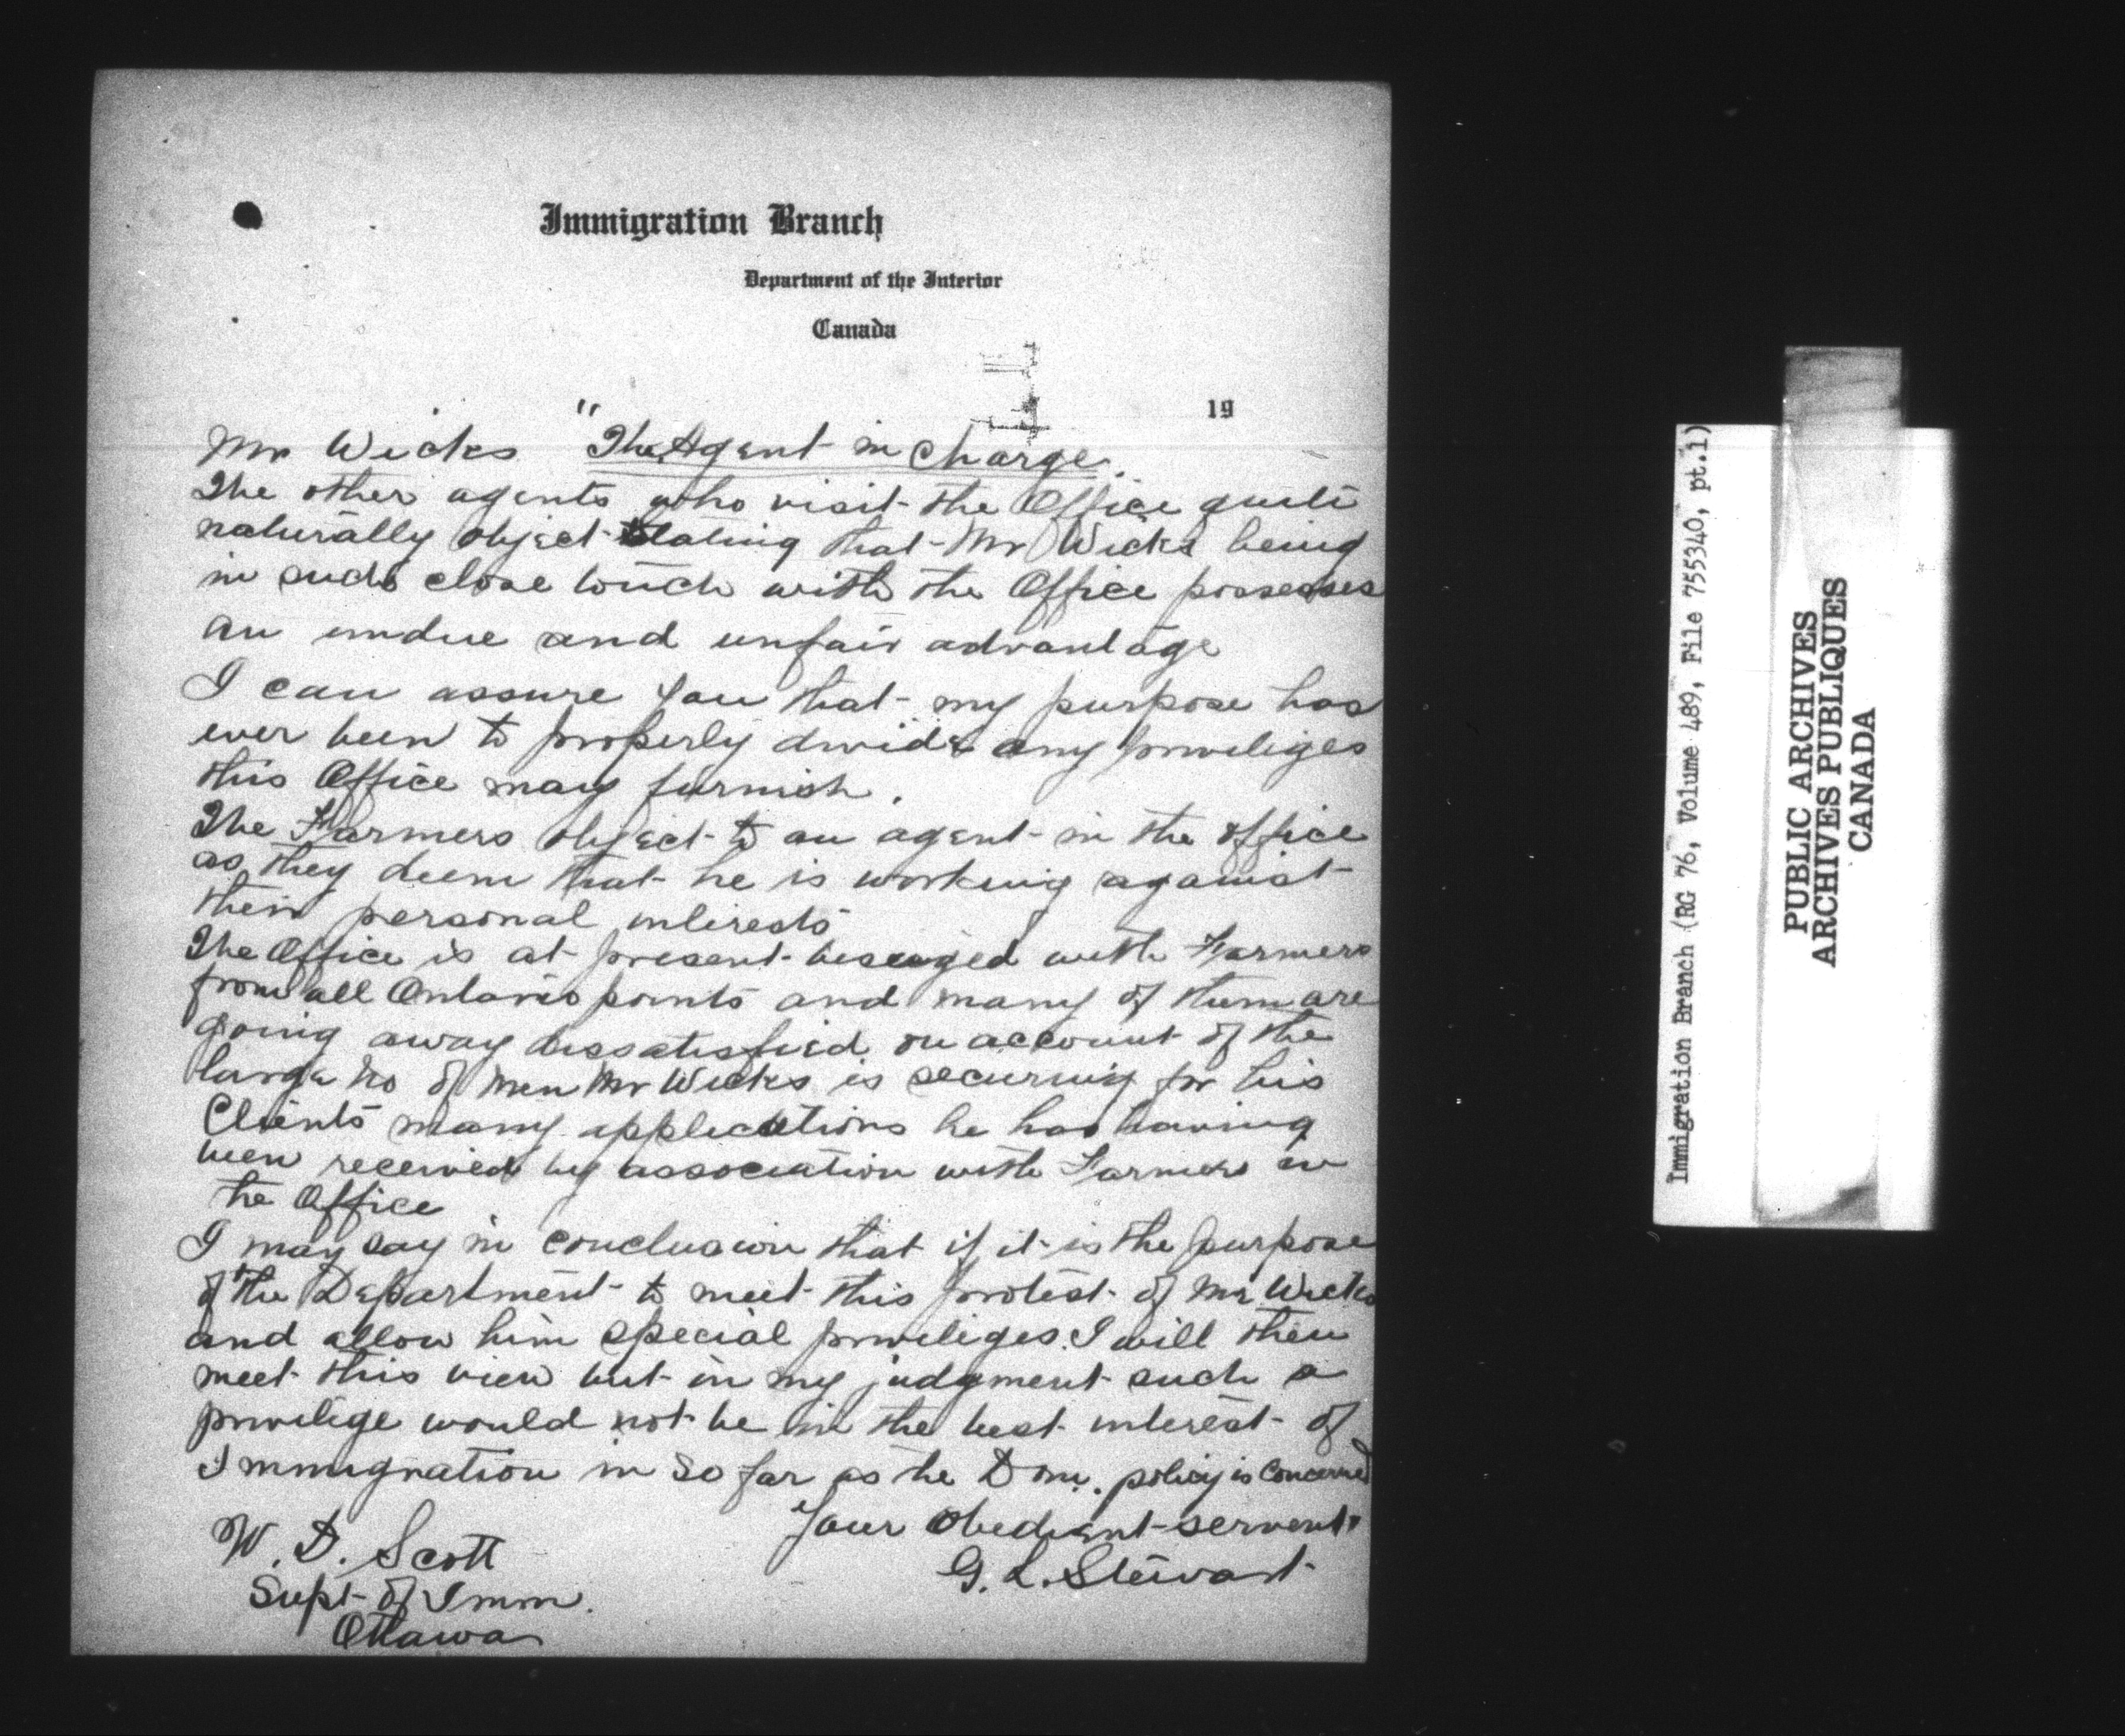 Immigration Branch
Department of the Interior
Canada
19
Mr Wicks "The Agent in Charge.
The other agents who visit the Office quite
naturally object stating that Mr Wicks being
in such close touch with the Office possesses
an undue and unfair advantage
I can assure you that my purpose has
ever been to properly divide any priviliges
this Office may furnish.
The Farmers object to an agent in the office
as they deem that he is working against
their personal interests
The Office is at present beseiged with Farmers
from all Ontario points and many of them are
going away dissatisfied on account of the
large no of men Mr Wicks is securing for his
Clients many applications he has having
been received by association with Farmers in
the Office
I may say in conclusion that if it is the purpose
of the Department to meet this protest of Mr Wicks
and allow him special priviliges. I will then
meet this view but in my judgment such a
privilige would not be in the best interest of
Immigration in so far as the Dom. policy is concerned
Your obedient servent
G. L. Stewart
W. D. Scott
Supt of Imm.
Ottawa
Immigration Branch (RG 76, Volume 489, File 755340, pt.1)
PUBLIC ARCHIVES
ARCHIVES PUBLIQUES
CANADA